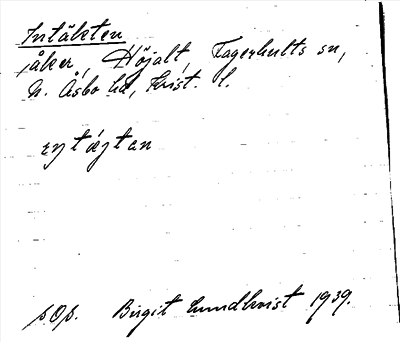 Intäkten
åker, Höjalt, Fagerhults sn,
N. Åsbo hd, Krist. l.
pOp. Birgit Lundkvist 1939.